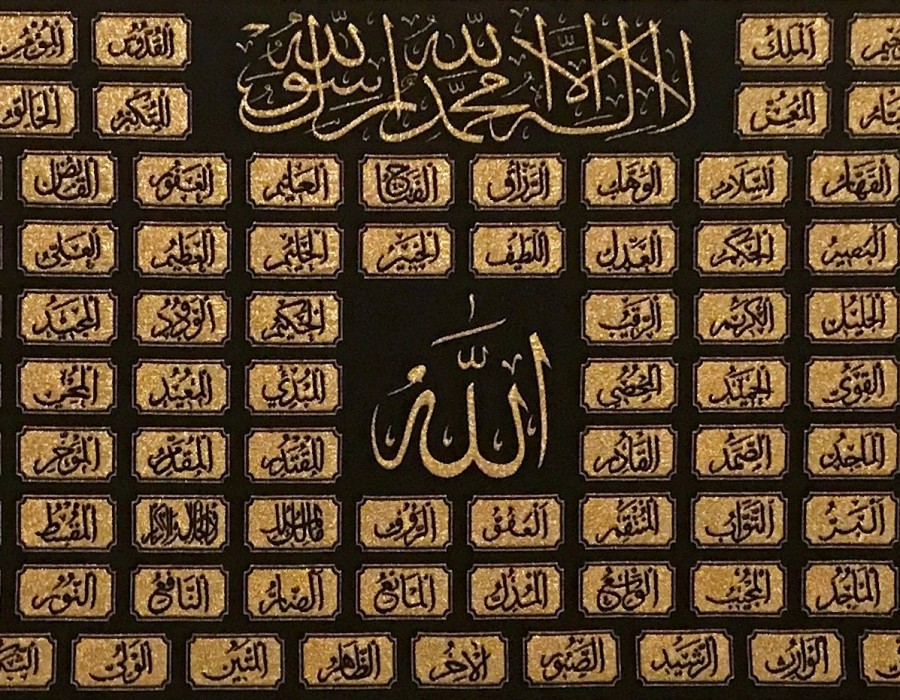 الملك لا اله الا الله محمد رسول الله القدوس
المعز المتكبر الخالق
القهار السلام الوهاب الرزاق الفتاح العليم الغفور القابض
البصير الحكم العدل اللطيف الخبير الحليم العظيم العلي
الجليل الكريم الرقيب الحكيم الودود المجيد
الله
القوي الحميد المحصي المبدي المعيد المحي
الماجد الصمد القادر المقتدر المقدم المؤخر
البر التواب المنتقم العفو الرؤف مالك الملك ذو الجلال والاكرام المقسط
الماجد المجيب الواسع المذل المانع الضار النافع النور
الوارث الرشيد الصبور الاخر الظاهر المتين الولي